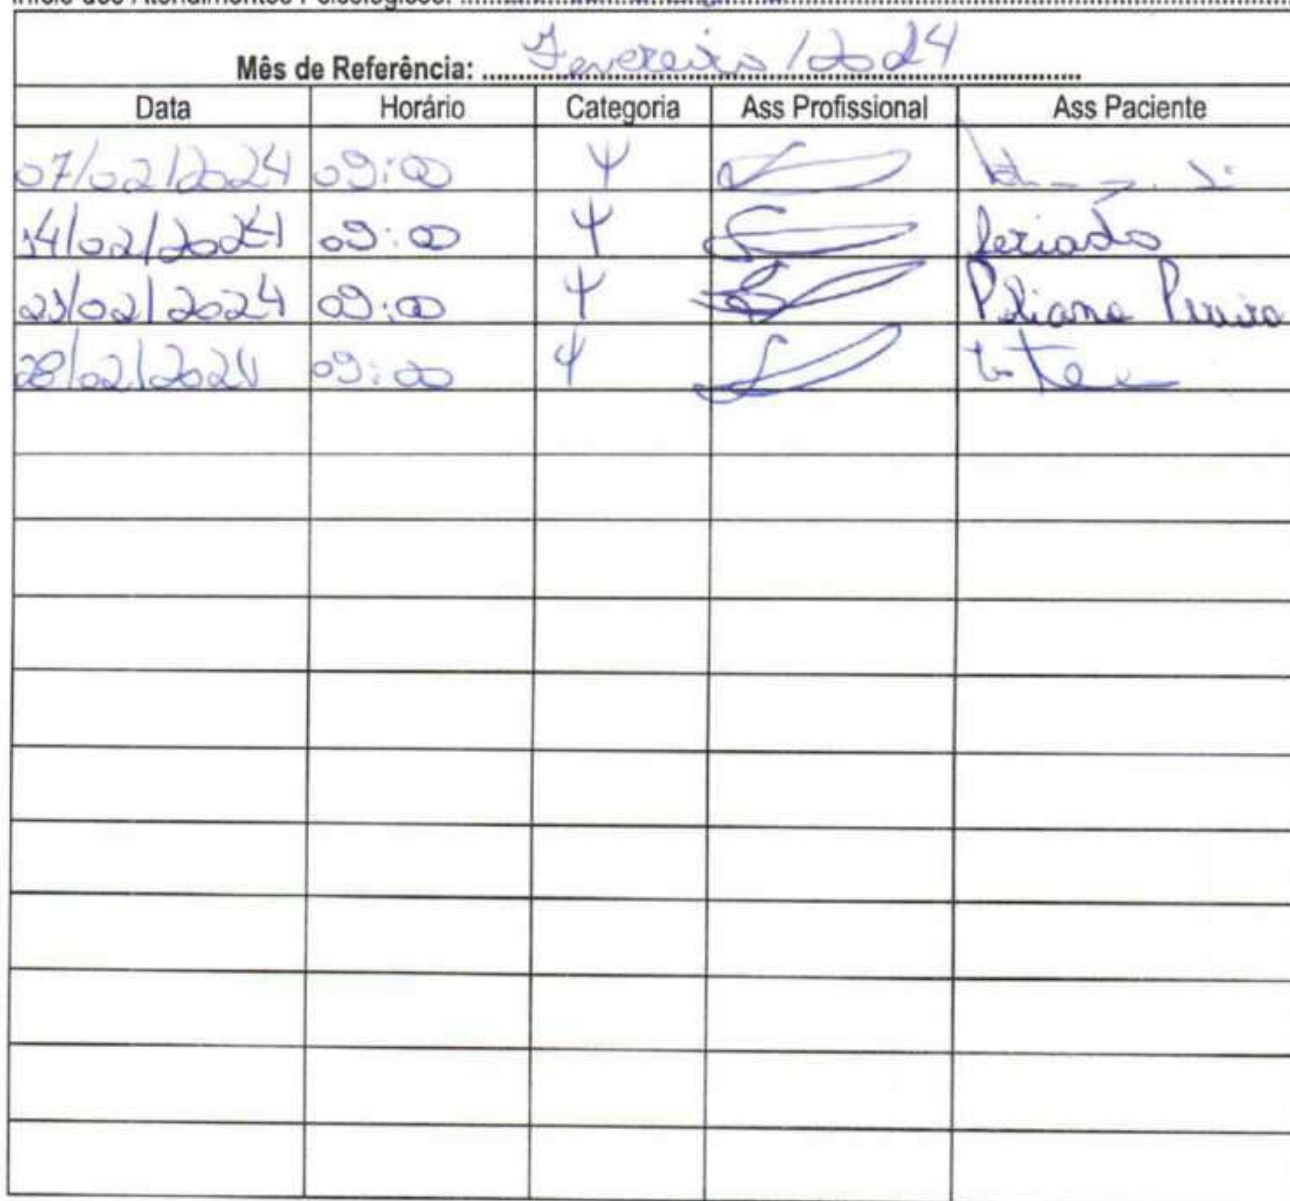 Início dos Atendimentos Psicológicos:
Mês de Referência: Fevereiro/2024
Data Horário Categoria Ass Profissional Ass Paciente
07/02/2024 09:00 Ψ
14/02/2024 09:00 Ψ feriado
23/02/2024 09:00 Ψ Poliana Pereira
28/02/2024 09:00 Ψ